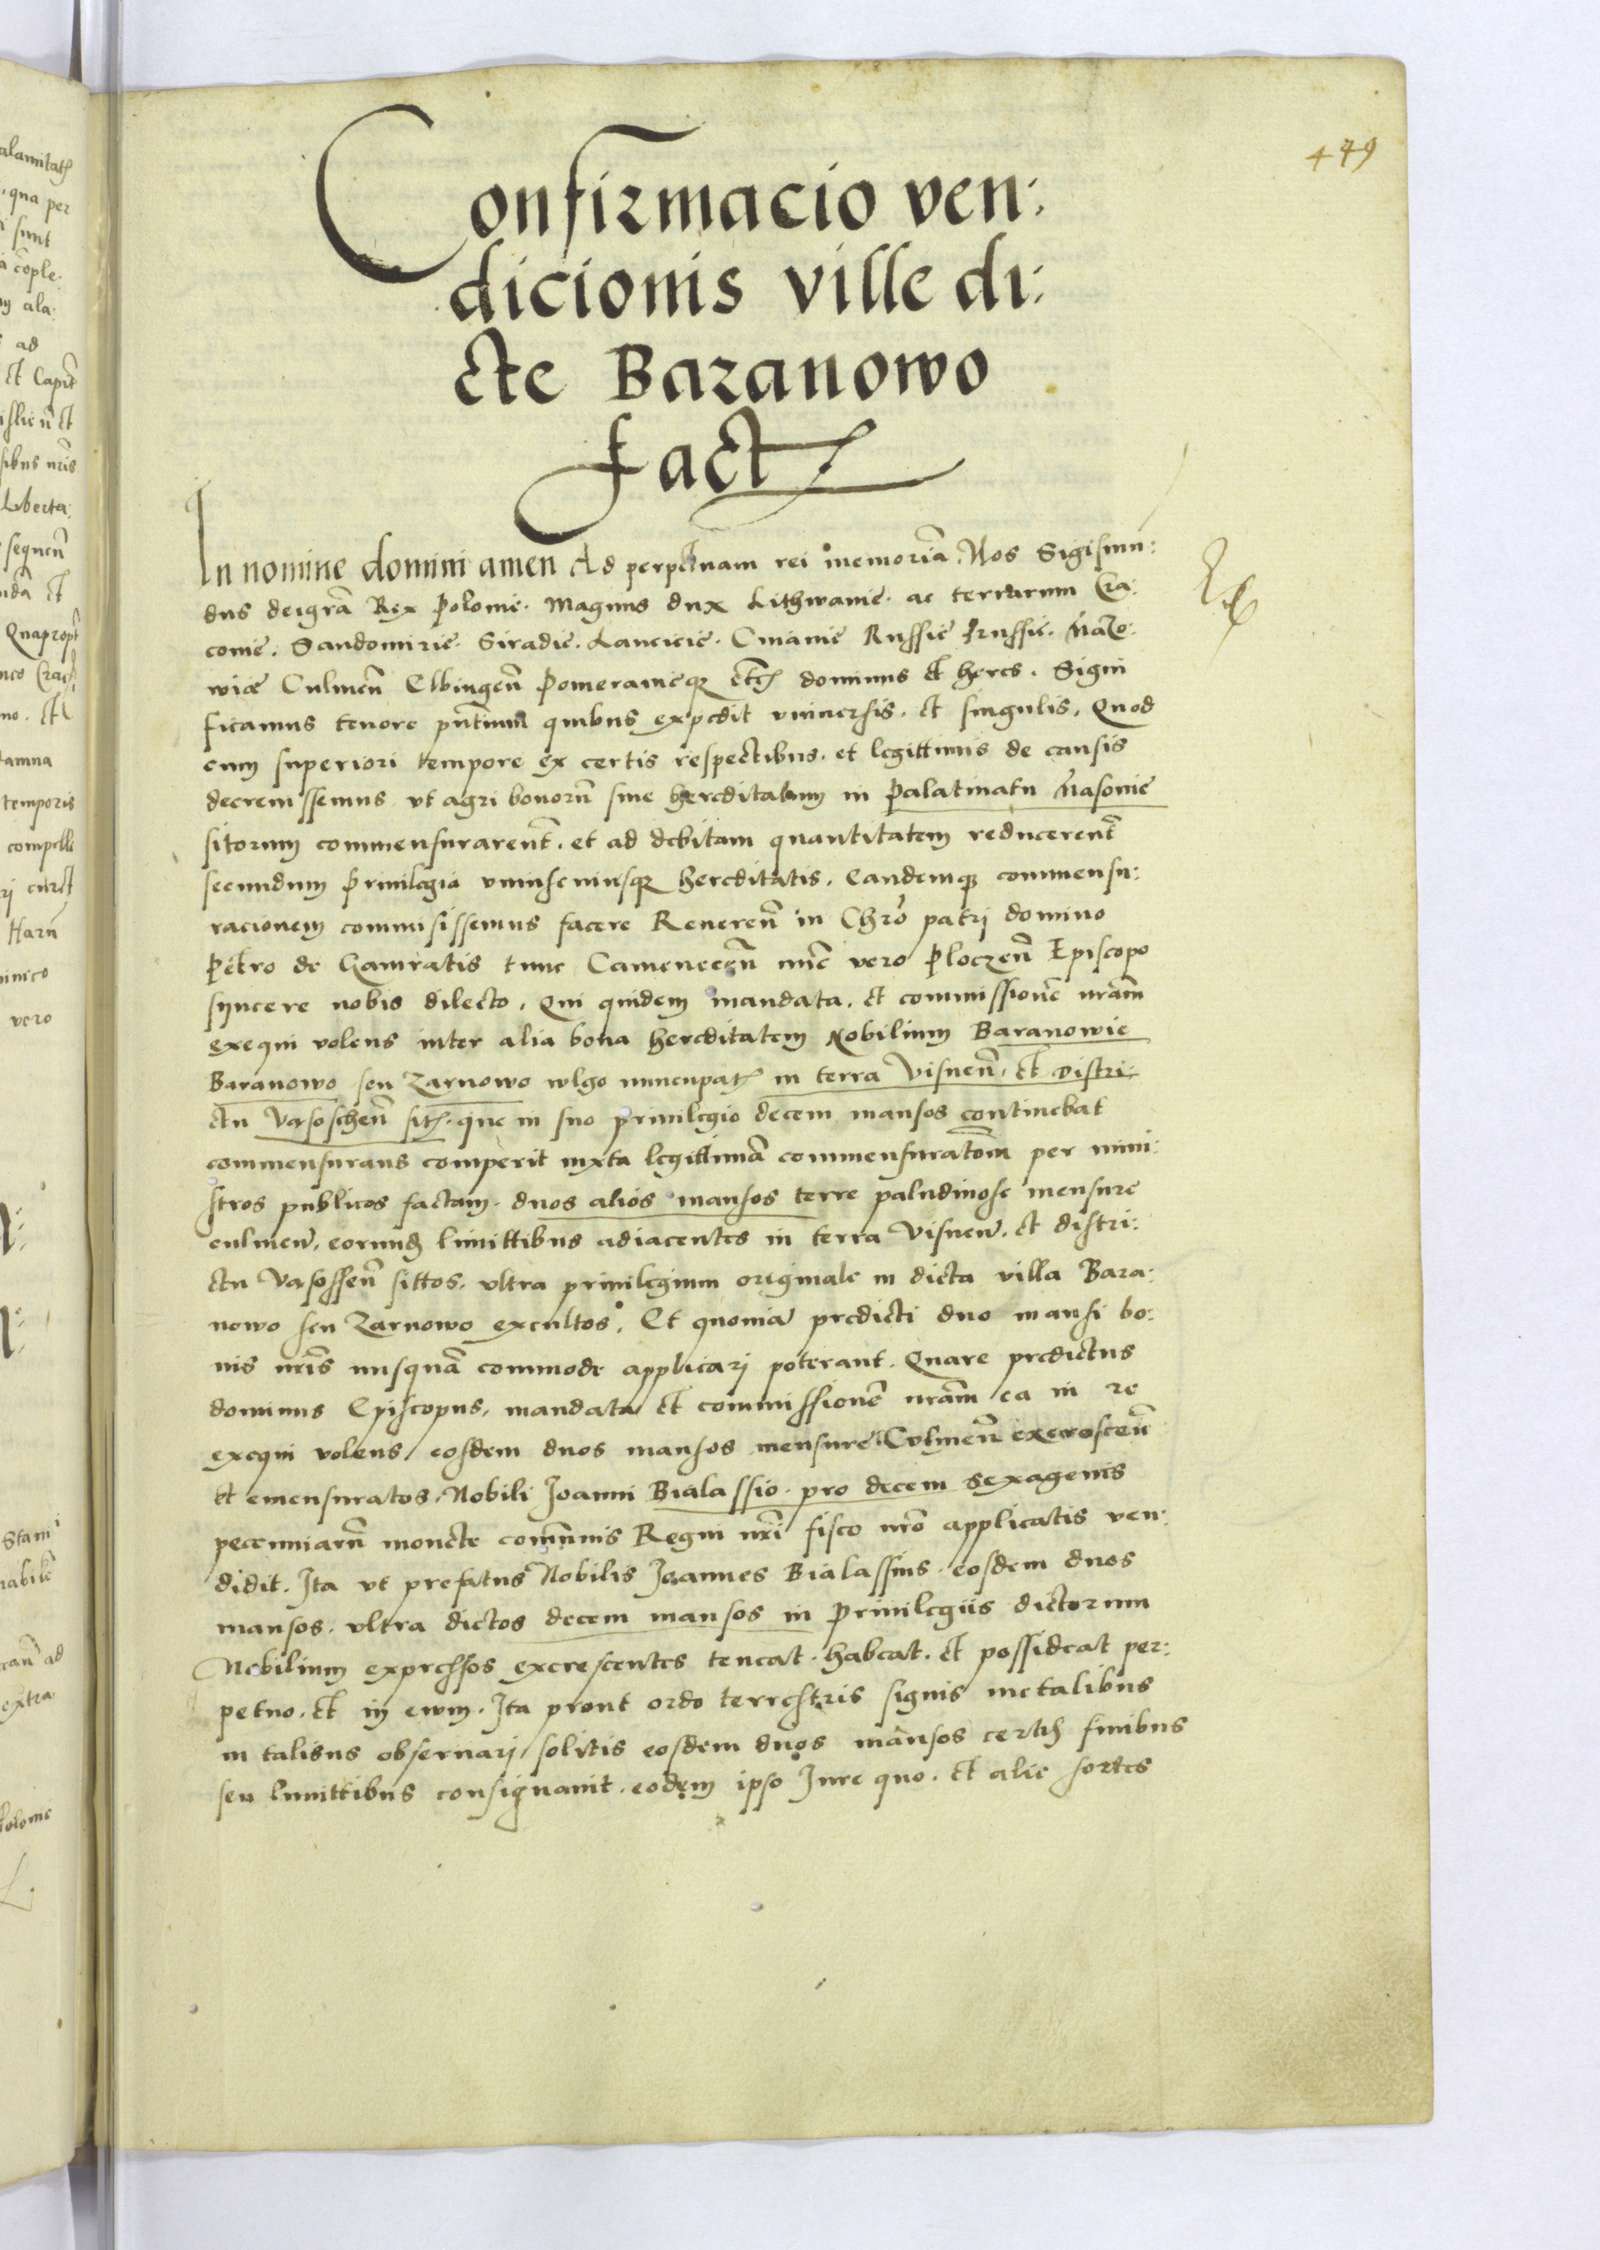 479
Confirmacio ven:
dicionis ville di:
cte Baranowo
fact
In nomine domini amen Ad perpetuam rei memoriā. Nos Sigismun:
dus dei grā Rex Polonie. Magnus dux Lithwanie. ac terrarum Cra:
covie. Sandomirie. Siradie. Lancicie. Cuiavie Russie Prussie. Mazo:
wie Culmeñ Elbingeñ Pomeranieqꝫ etcꝫ dominus et heres. Signi
ficamus tenore pñtium quibus expedit universis. et singulis. Quod
cum superiori tempore ex certis respectibus. et legittimis de causis
decrevissemus ut agri bonorū sive hereditatum in Palatinatu Masovie
sitorum commensurarent̄. et ad debitam quantitatem reducerent̄
secundum privilegia uniuscuiusqꝫ hereditatis. Eandemqꝫ commensu:
racionem commisissemus facere Revereñ in Chrō patri domino
Petro de Gamratis tunc Cameneceñ nūc vero Ploczeñ Episcopo
syncere nobis dilecto. Qui quidem mandata. et commissionē nrām
exequi volens inter alia bona hereditatem Nobilium Baranowie
Baranowo seu Zarnowo wlgo nuncupatꝫ in terra Visneñ. et Distri:
ctu Vasoscheñ sitꝫ. que in suo privilegio decem mansos continebat
commensurans comperit iuxta legittimā commensuratōm per mini:
stros publicos factam. duos alios mansos terre paludinose mensure
culmeñ. eorundꝫ limittibus adiacentes in terra Visneñ. et distri:
ctu Vasosseñ sittos. ultra privilegium originale in dicta villa Bara:
nowo seu Zarnowo excultos. Et quoniā predicti duo mansi bo:
nis nrīs nusquā commode applicari poterant. Quare predictus
dominus Episcopus, mandata et commissionē nrām ea in re
exequi volens, eosdem duos mansos mensure Culmeñ excresceñ
et emensuratos. Nobili Joanni Bialassio. pro decem sexagenis
pecuniarū monete cōmunis Regni nrī fisco nrō applicatis ven:
didit. Ita ut prefatus Nobilis Joannes Bialassius. eosdem duos
mansos. ultra dictos decem mansos in privilegiis dictorum
Nobilium expressos excrescentes teneat. habeat. et possideat per:
petuo. et in ewm. Ita prout ordo terrestris signis metalibus
in talibus observari solitis eosdem duos mansos certis finibus
seu limittibus consignavit. eodem ipso Jure quo. et alie sortes